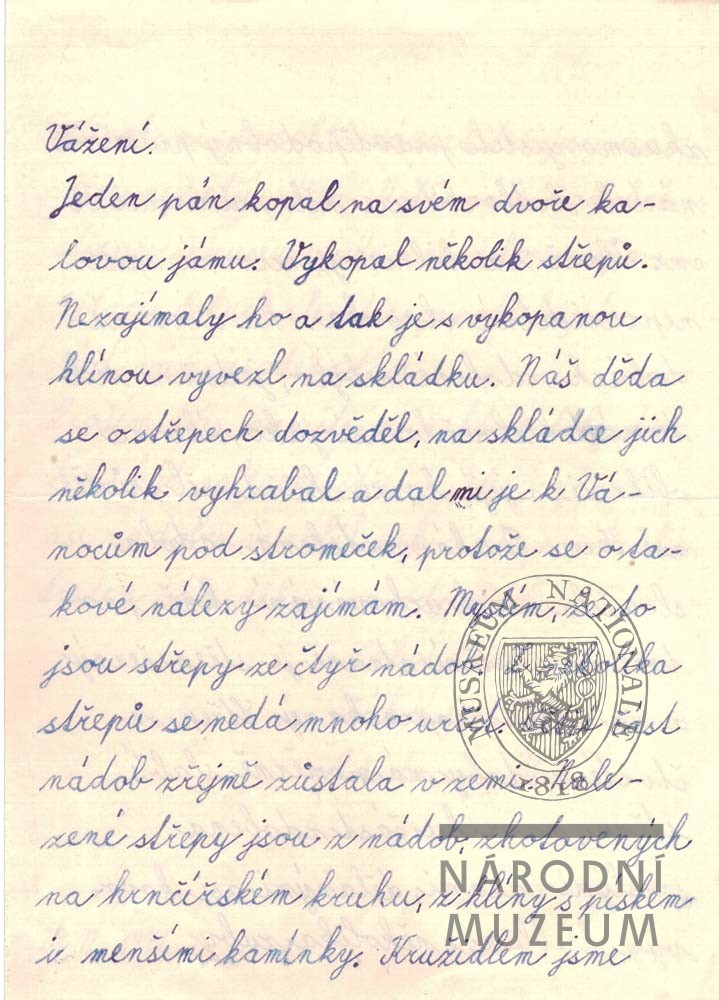 Vážení.
Jeden pán kopal na svém dvoře ka-
lovou jámu. Vykopal několik střepů.
Nezajímaly ho a tak je s vykopanou
hlínou vyvezl na skládku. Náš děda
se o střepech dozvěděl, na skládce jich
několik vyhrabal a dal mi je k Vá-
nocům pod stromeček, protože se o ta-
kové nálezy zajímám. Myslím, že to
jsou střepy ze čtyř nádob. Z kolika
střepů se nedá mnoho určit. část
nádob zřejmě zůstala v zemi. Nale-
zené střepy jsou z nádob, zhotovených
na hrnčířském kruhu, z hlíny s pískem
i s menšími kamínky. Kružidlem jsme
MUSEUM NATIONALE
1818
NÁRODNÍ
MUZEUM